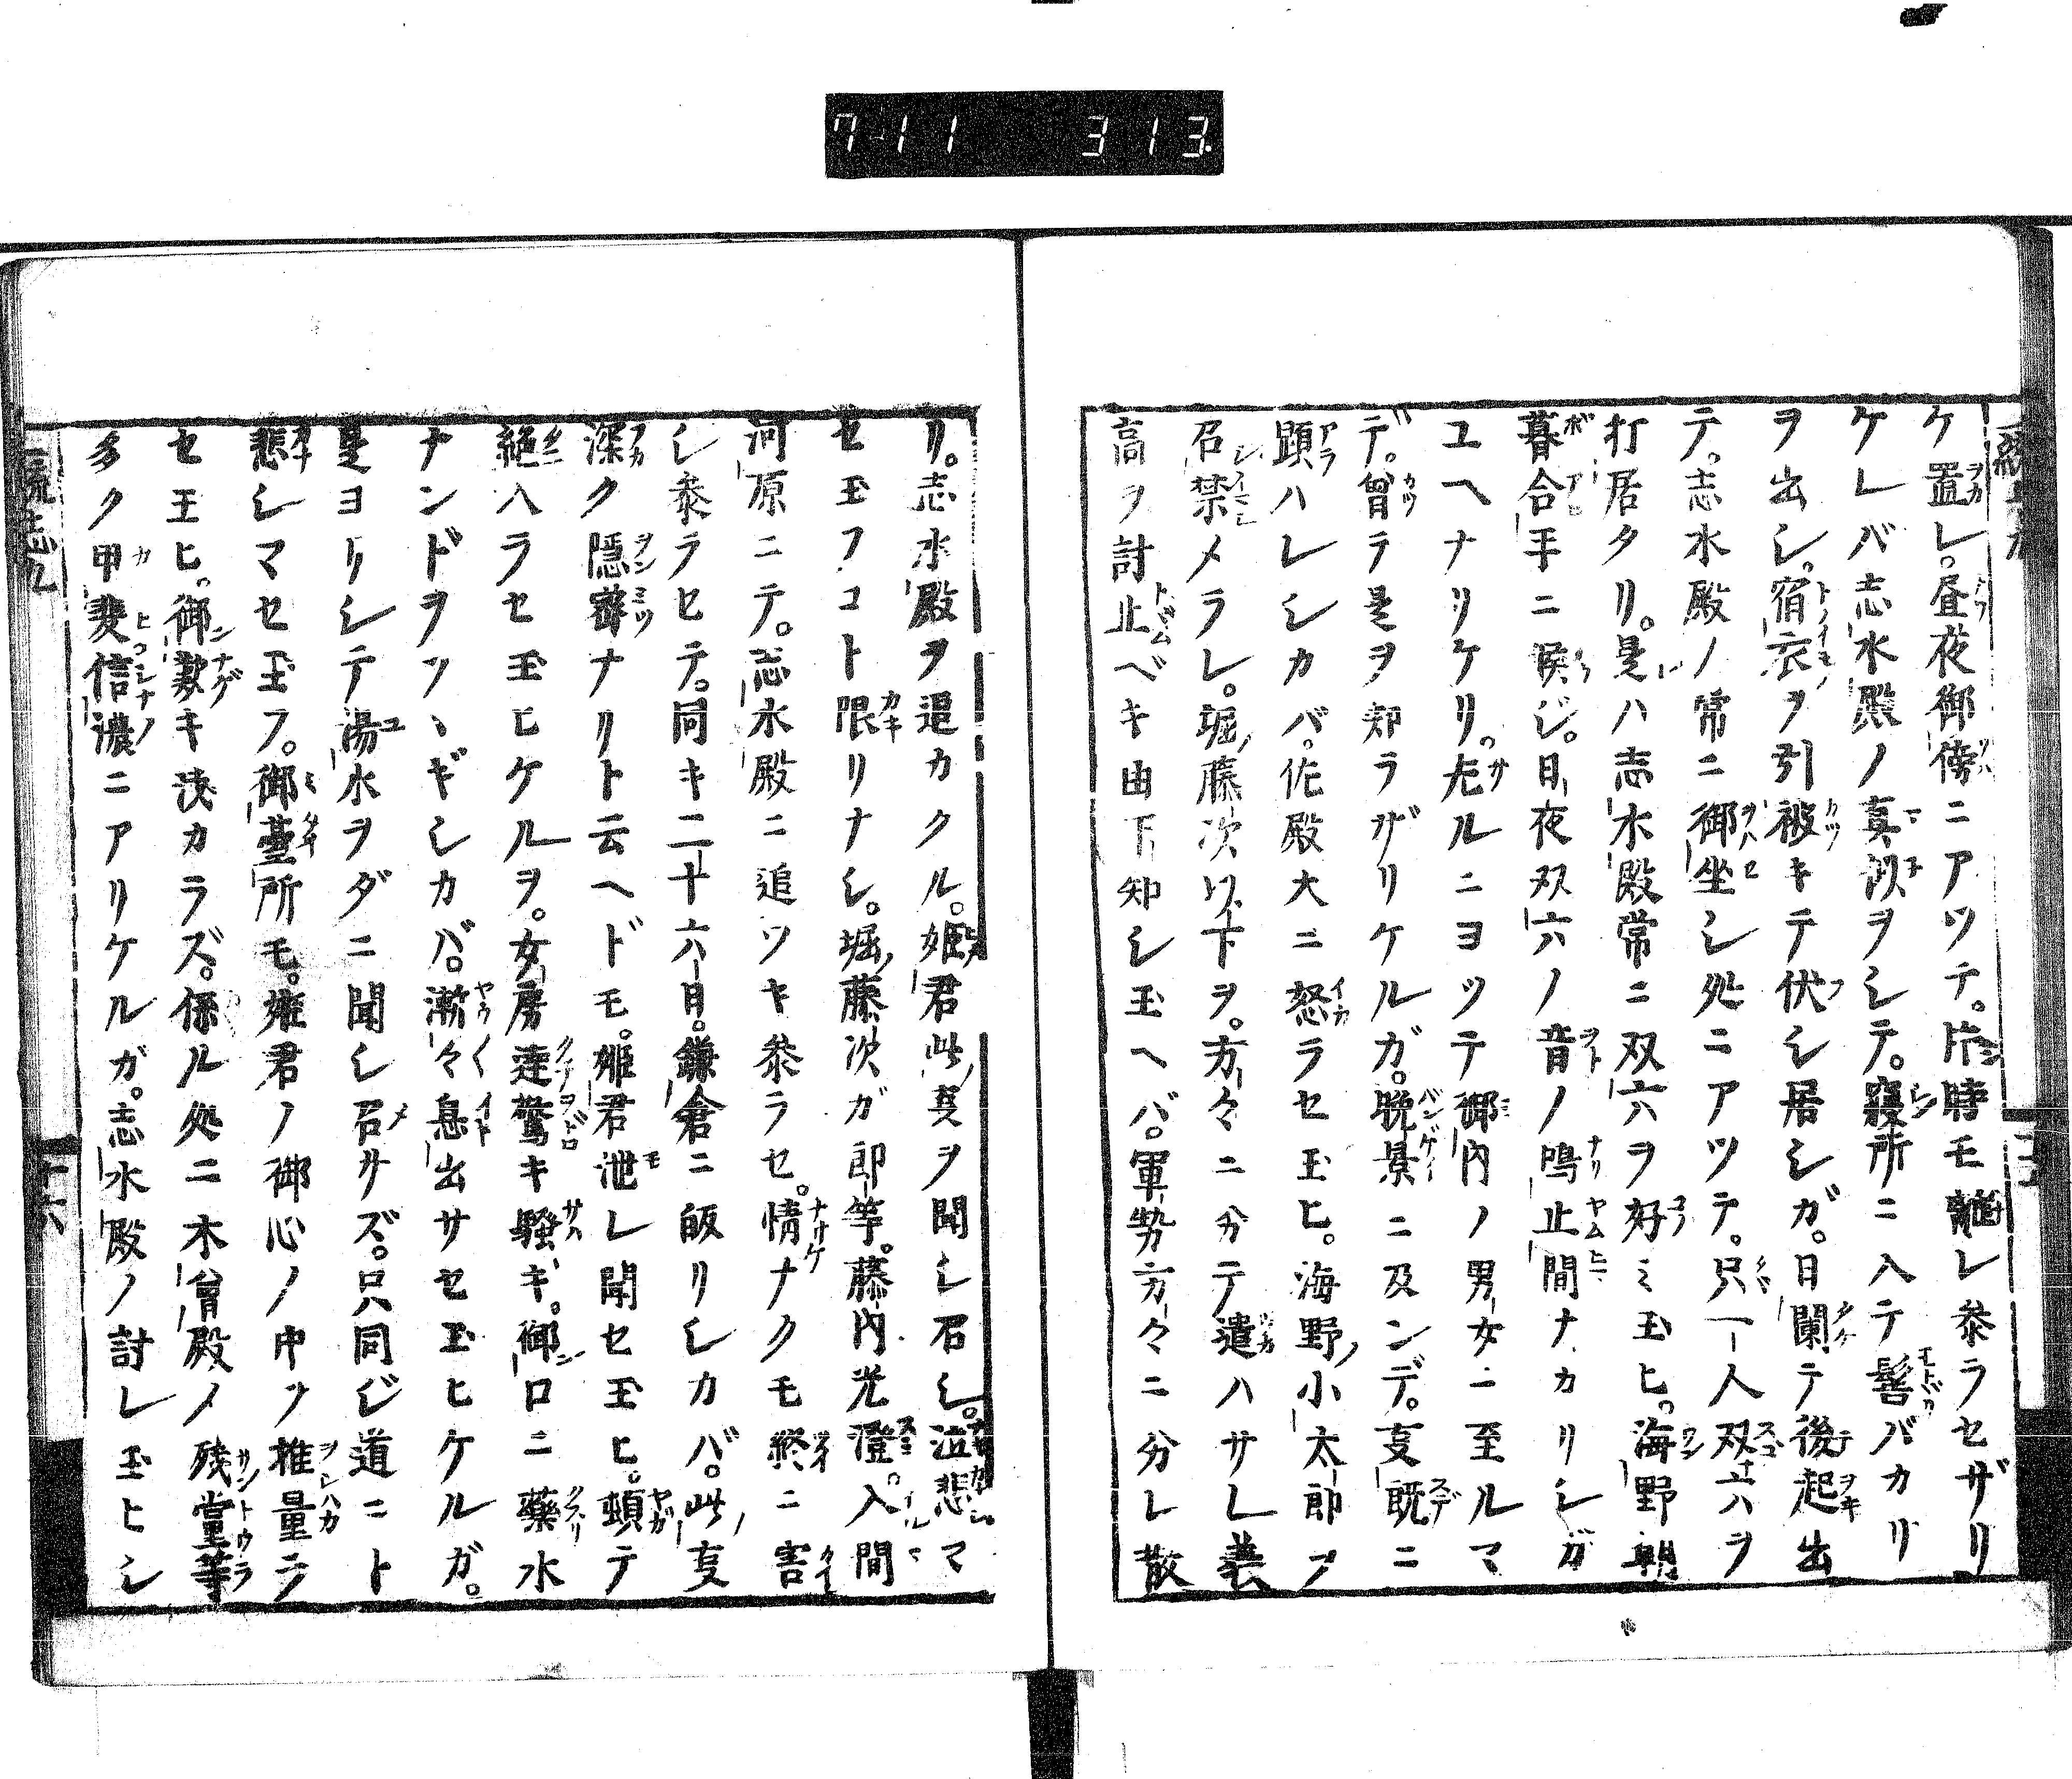 7-11 313
ケ置レ。昼夜御傍ニアツテ。片時モ離レ参ラセザリ
ケレバ志水殿ノ真似ヲシテ。寝所ニ入テ髻バカリ
ヲ出シ。宿衣ヲ引被キテ伏シ居シガ。日闌テ後起出
テ。志水殿ノ常ニ御坐シ処ニアツテ。只一人双六ヲ
打居タリ。是ハ志水殿常ニ双六ヲ好ミ玉ヒ。海野朝
暮合手ニ候ジ。日夜双六ノ音ノ鳴止間ナカリシガ
ユヘナリケリ。左ルニヨツテ御内ノ男女ニ至ルマ
デ。曾テ是ヲ知ラザリケルガ。晩景ニ及ンデ。叓既ニ
顕ハレシカバ。佐殿大ニ怒ラセ玉ヒ。海野小太郎ヲ
召禁メラレ。堀藤次以下ヲ。方々ニ分テ遣ハサレ義
高ヲ討止ベキ由下知シ玉ヘバ。軍勢方々ニ分レ散
リ。志水殿ヲ追カクル。姫君此叓ヲ聞シ召シ。泣悲マ
セ玉フコト限リナシ。堀藤次ガ郎等。藤内光澄。入間
河原ニテ。志水殿ニ追ツキ参ラセ。情ナクモ終ニ害
シ参ラセテ。同キ二十六日。鎌倉ニ皈リシカバ。此叓
深ク隠密ナリト云ヘドモ。姫君泄レ聞セ玉ヒ。頓テ
絶入ラセ玉ヒケルヲ。女房達驚キ騒ギ。御口ニ薬水
ナンドヲソヽギシカバ。漸々息出サセ玉ヒケルガ。
是ヨリシテ湯水ヲダニ聞シ召サズ。只同ジ道ニト
悲シマセ玉フ。御臺所モ。姫君ノ御心ノ中ヲ推量ラ
セ玉ヒ。御歎キ浅カラズ。係ル処ニ木曾殿ノ残堂等
多ク甲斐信濃ニアリケルガ。志水殿ノ討レ玉ヒシ
十六